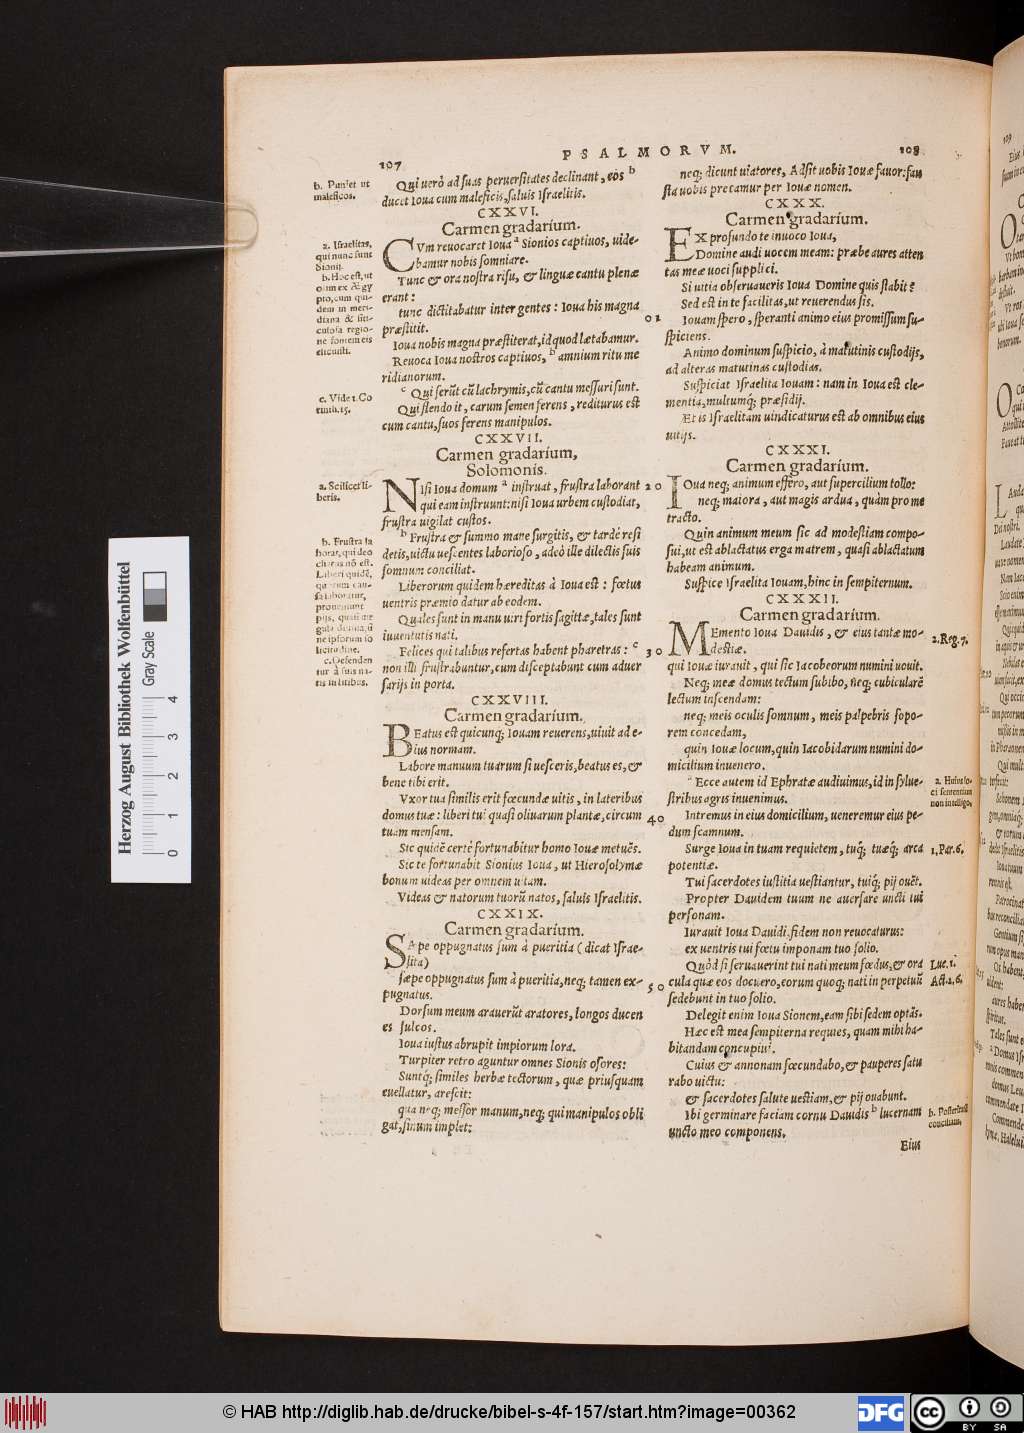 PSALMORVM.
107
Qui uerò ad suas peruersitates declinant, eos b
ducet Ioua cum maleficis, saluis Israelitis.
CXXVI.
Carmen gradarium.
CVm reuocaret Ioua a Sionios captiuos, uide-
bamur nobis somniare.
Tunc & ora nostra risu, & linguæ cantu plenæ
erant:
tunc dictitabatur inter gentes: Ioua his magna
præstitit.
Ioua nobis magna præstiterat, id quod lætabamur.
Reuoca Ioua nostros captiuos, b amnium ritu me
ridianorum.
c Qui serūt cū lachrymis, cū cantu messuri sunt.
Qui flendo it, carum semen ferens, rediturus est
cum cantu, suos ferens manipulos.
CXXVII.
Carmen gradarium,
Solomonis.
NIsi Ioua domum a instruat, frustra laborant
qui eam instruunt: nisi Ioua urbem custodiat,
frustra uigilat custos.
b Frustra & summo mane surgitis, & tardè resi
detis, uictu uescentes laborioso, adeò ille dilectis suis
somnum conciliat.
Liberorum quidem hæreditas à Ioua est: fœtus
uentris præmio datur ab eodem.
Quales sunt in manu uiri fortis sagittæ, tales sunt
iuuentutis nati.
Felices qui talibus refertas habent pharetras: c
non illi frustrabuntur, cum disceptabunt cum aduer
sarijs in porta.
CXXVIII.
Carmen gradarium.
BEatus est quicunq; Iouam reuerens, uiuit ad e-
ius normam.
Labore manuum tuarum si uesceris, beatus es, &
bene tibi erit.
Vxor tua similis erit fœcundæ uitis, in lateribus
domus tuæ: liberi tui quasi oliuarum plantæ, circum
tuam mensam.
Sic quidē certè fortunabitur homo Iouæ metuēs.
Sic te fortunabit Sionius Ioua, ut Hierosolymæ
bonum uideas per omnem uitam.
Videas & natorum tuorū natos, saluis Israelitis.
CXXIX.
Carmen gradarium.
SÆpe oppugnatus sum à pueritia (dicat Israe-
lita)
sæpe oppugnatus sum à pueritia, neq; tamen ex-
pugnatus.
Dorsum meum arauerūt aratores, longos ducen
es sulcos.
Ioua iustus abrupit impiorum lora.
Turpiter retro aguntur omnes Sionis osores:
Suntq́; similes herbæ tectorum, quæ priusquam
euellatur, arescit:
qua neq; messor manum, neq; qui manipulos obli
gat, sinum implet:
b. Puniet ut
maleficos.
a. Israelitas,
qui nunc sunt
Sionij.
b. Hoc est, ut
olim ex Ægy
pto, cum qui-
dem in meri-
diana & siti-
culosa regio-
ne fontem eis
elicuisti.
c. Vide 1. Co
rinth. 15.
a. Scilicet li-
beris.
b. Frustra la
boras, qui deo
charus nō est.
Liberi quidē,
quorum cau-
sa laboratur,
proueniunt
pijs, quasi
ne ipsorum so
licitudine.
c. Defenden
tur à suis na-
tis in litibus.
10
20
30
40
50
108
neq; dicunt uiatores, Adsit uobis Iouæ fauor: fau
sta uobis precamur per Iouæ nomen.
CXXX.
Carmen gradarium.
EX profundo te inuoco Ioua,
Domine audi uocem meam: præbe aures atten
tas meæ uoci supplici.
Si uitia obseruaueris Ioua Domine quis stabit?
Sed est in te facilitas, ut reuerendus sis.
Iouam spero, speranti animo eius promissum su-
spiciens.
Animo dominum suspicio, à matutinis custodijs,
ad alteras matutinas custodias.
Suspiciat Israelita Iouam: nam in Ioua est cle-
mentia, multumq́; præsidij.
Et is Israelitam uindicaturus est ab omnibus eius
uitijs.
CXXXI.
Carmen gradarium.
IOua neq; animum effero, aut supercilium tollo:
neq; maiora, aut magis ardua, quàm pro me
tracto.
Quin animum meum sic ad modestiam compo-
sui, ut est ablactatus erga matrem, quasi ablactatum
habeam animum.
Suspice Israelita Iouam, hinc in sempiternum.
CXXXII.
Carmen gradarium.
MEmento Ioua Dauidis, & eius tantæ mo-
destiæ.
qui Iouæ iurauit, qui sic Iacobeorum numini uouit.
Neq; meæ domus tectum subibo, neq; cubicularē
lectum inscendam:
neq; meis oculis somnum, meis palpebris sopo-
rem concedam,
quin Iouæ locum, quin Iacobidarum numini do-
micilium inuenero.
a Ecce autem id Ephratæ audiuimus, id in sylue-
stribus agris inuenimus.
Intremus in eius domicilium, ueneremur eius pe-
dum scamnum.
Surge Ioua in tuam requietem, tuq́; tuæq́; arca
potentiæ.
Tui sacerdotes iustitia uestiantur, tuiq́; pij ouēt.
Propter Dauidem tuum ne auersare uncti tui
personam.
Iurauit Ioua Dauidi, fidem non reuocaturus:
ex uentris tui fœtu imponam tuo solio.
Quòd si seruauerint tui nati meum fœdus, & ora
cula quæ eos docuero, eorum quoq; nati in perpetuū
sedebunt in tuo solio.
Delegit enim Ioua Sionem, eam sibi sedem optās.
Hæc est mea sempiterna requies, quam mihi ha-
bitandam concupiui.
Cuius & annonam fœcundabo, & pauperes satu
rabo uictu:
& sacerdotes salute uestiam, & pij ouabunt.
Ibi germinare faciam cornu Dauidis b lucernam
uncto meo componens.
Eius
2. Reg. 7.
a. Huius lo-
ci sententiam
non intelligo.
1. Par. 6.
Luc. 1.
Act. 2. 6.
b. Posteritatē
concilians.
Herzog August Bibliothek Wolfenbüttel
Gray Scale
0 1 2 3 4
© HAB http://diglib.hab.de/drucke/bibel-s-4f-157/start.htm?image=00362
DFG
cc BY SA